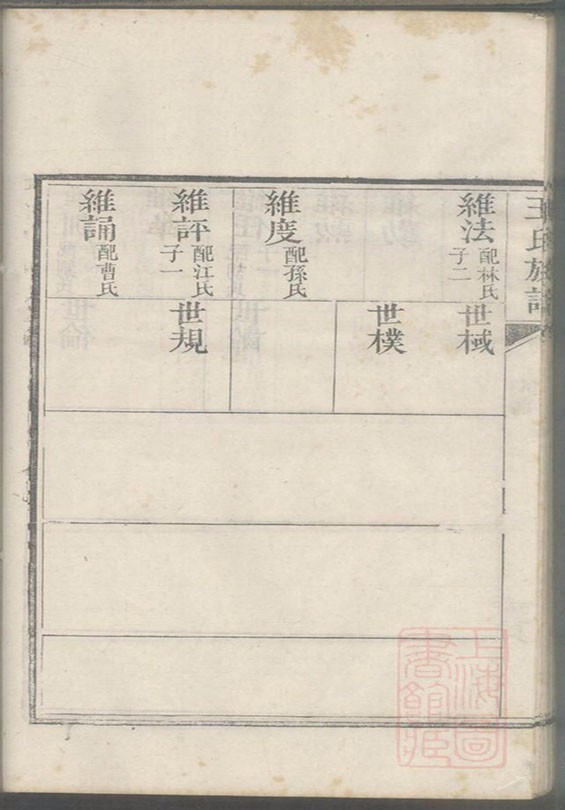 王氏族譜
維法
配林氏
子二
世棫
世樸
維度
配孫氏
維評
配江氏
子一
世規
維誦
配曹氏
上海圖
書館藏